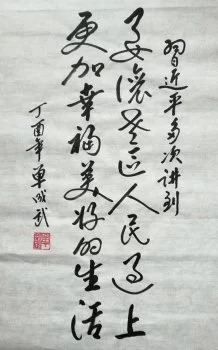 習近平多次讲到
要让老区人民过上
更加幸福美好的生活
丁酉年